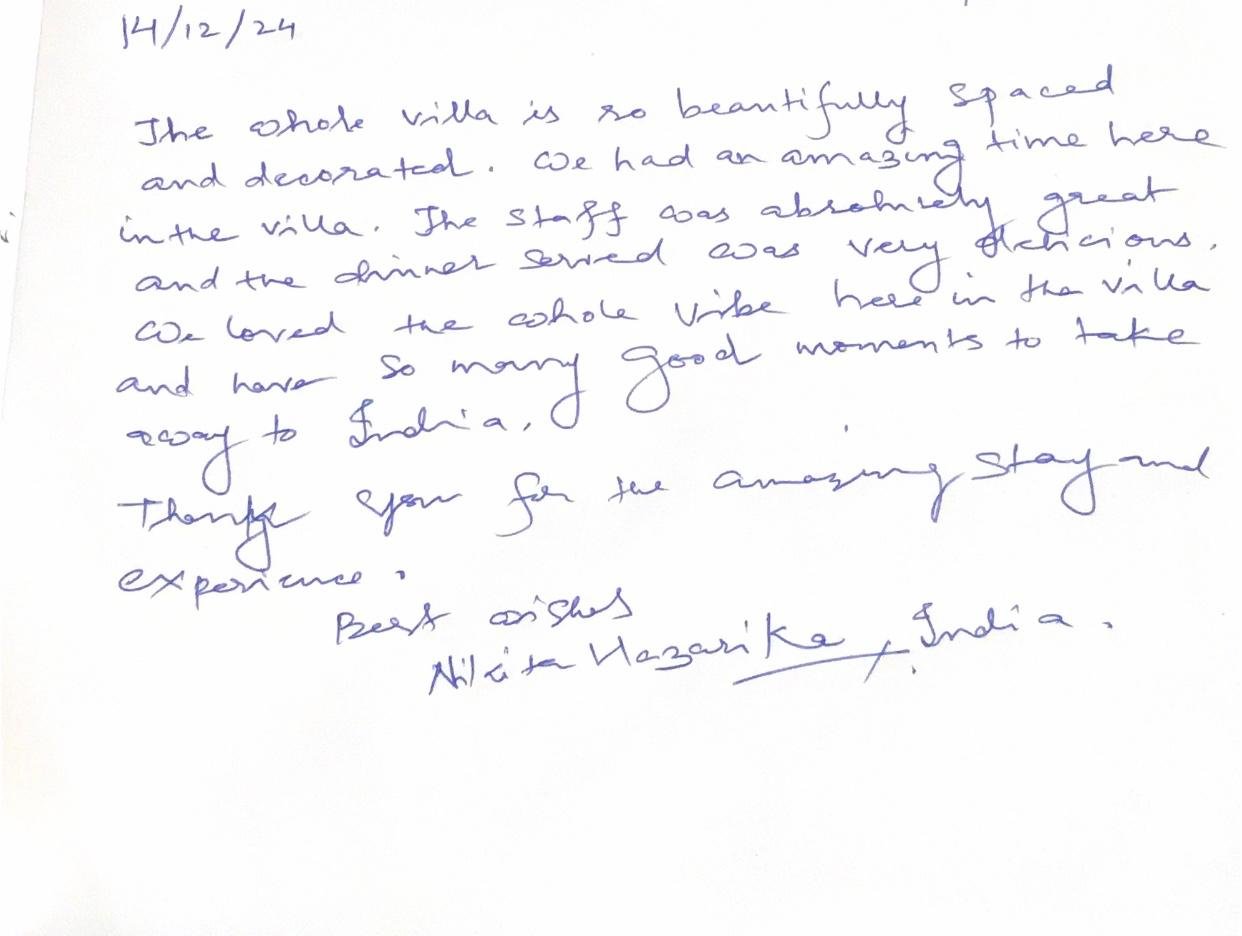 14/12/24
The whole villa is so beautifully spaced
and decorated. We had an amazing time here
in the villa. The staff was absolutely great
and the dinner served was very delicious.
We loved the whole vibe here in the villa
and have so many good moments to take
away to India.
Thank you for the amazing stay and
experience.
Best wishes
Nikita Hazarika, India.